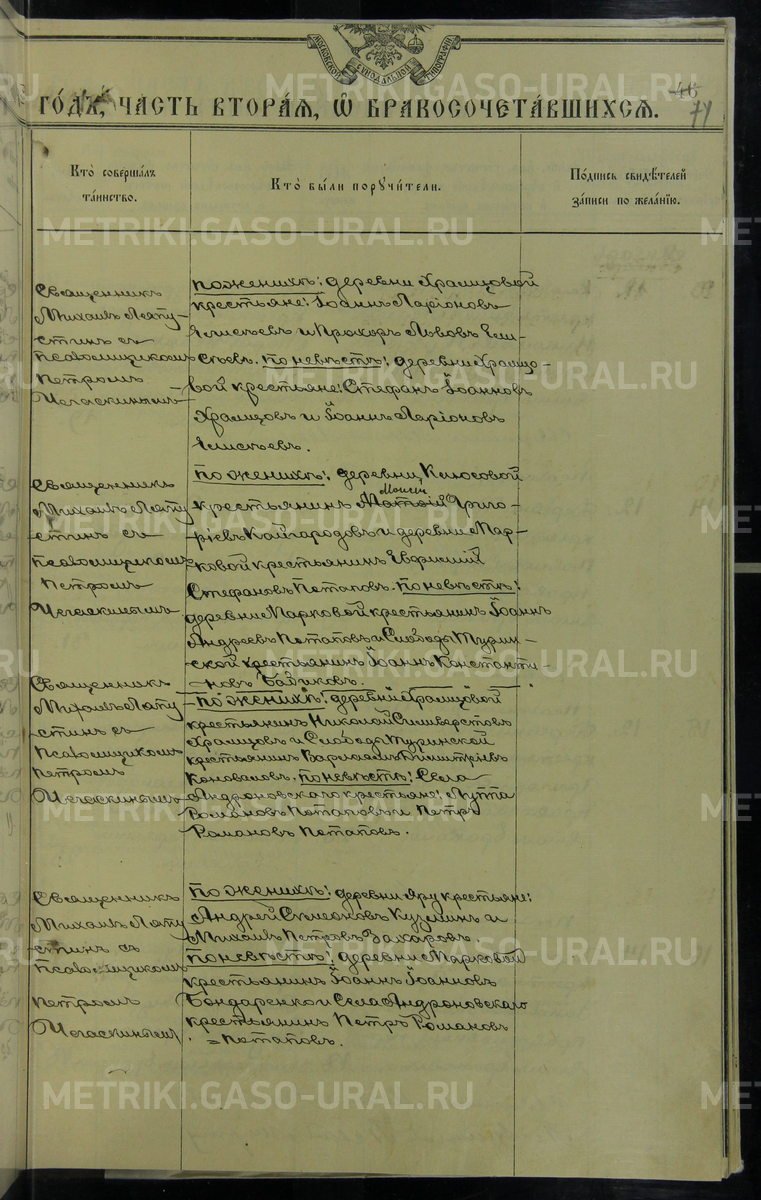 МОСКОВСКОЙ СѴНОДАЛЬНОЙ ТИПОГРАФІИ
METRIKI.GASO-URAL.RU
ГОДЪ, ЧАСТЬ ВТОРАЯ, Ѡ БРАКОСОЧЕТАВШИХСЯ.
71
Кто совершалъ таинство.
Кто были поручители.
Подпись свидѣтелей записи по желанію.
Священникъ
Михаилъ Ляпу-
стинъ съ
псаломщикомъ
Петромъ
по женихѣ: деревни Храмцовой
крестьяне: Іоаннъ Ларіоновъ
Елисѣевъ и Прохоръ Львовъ Ели-
сѣевъ. по невѣстѣ: деревни Храмцо-
вой крестьяне: Стефанъ Іоанновъ
Храмцовъ и Іоаннъ Ларіоновъ
Елисѣевъ.
Священникъ
Михаилъ Ляпу
стинъ съ
псаломщикомъ
Петромъ
по женихѣ: деревни
Моисей
крестьянинъ Григо-
рьевъ Кайгородовъ и деревни Мар-
ковой крестьянинъ Евфимій
Стефановъ Потаповъ. по невѣстѣ:
деревни Марковой крестьянинъ Іоаннъ
Андреевъ Потаповъ и Слободы Турин-
ской крестьянинъ Іоаннъ Константи-
новъ Бабиковъ.
Священникъ
Михаилъ Ляпу-
стинъ съ
псаломщикомъ
Петромъ
по женихѣ: деревни Храмцовой
крестьянинъ Николай Сильверстовъ
Храмцовъ и Слободы Туринской
крестьянинъ Варлаамъ Димитріевъ
Коноваловъ. по невѣстѣ: Села
Андроновскаго крестьяне: Луппа
Романовъ Потаповъ и Петръ
Романовъ Потаповъ.
Священникъ
Михаилъ Ляпу
стинъ съ
псаломщикомъ
Петромъ
по женихѣ: деревни Яру крестьяне:
Андрей Симеоновъ Кузьминъ и
Михаилъ Петровъ Захаровъ.
по невѣстѣ: деревни Марковой
крестьянинъ Іоаннъ Іоанновъ
Бондаренко и Села Андроновскаго
крестьянинъ Петръ Романовъ
Потаповъ.